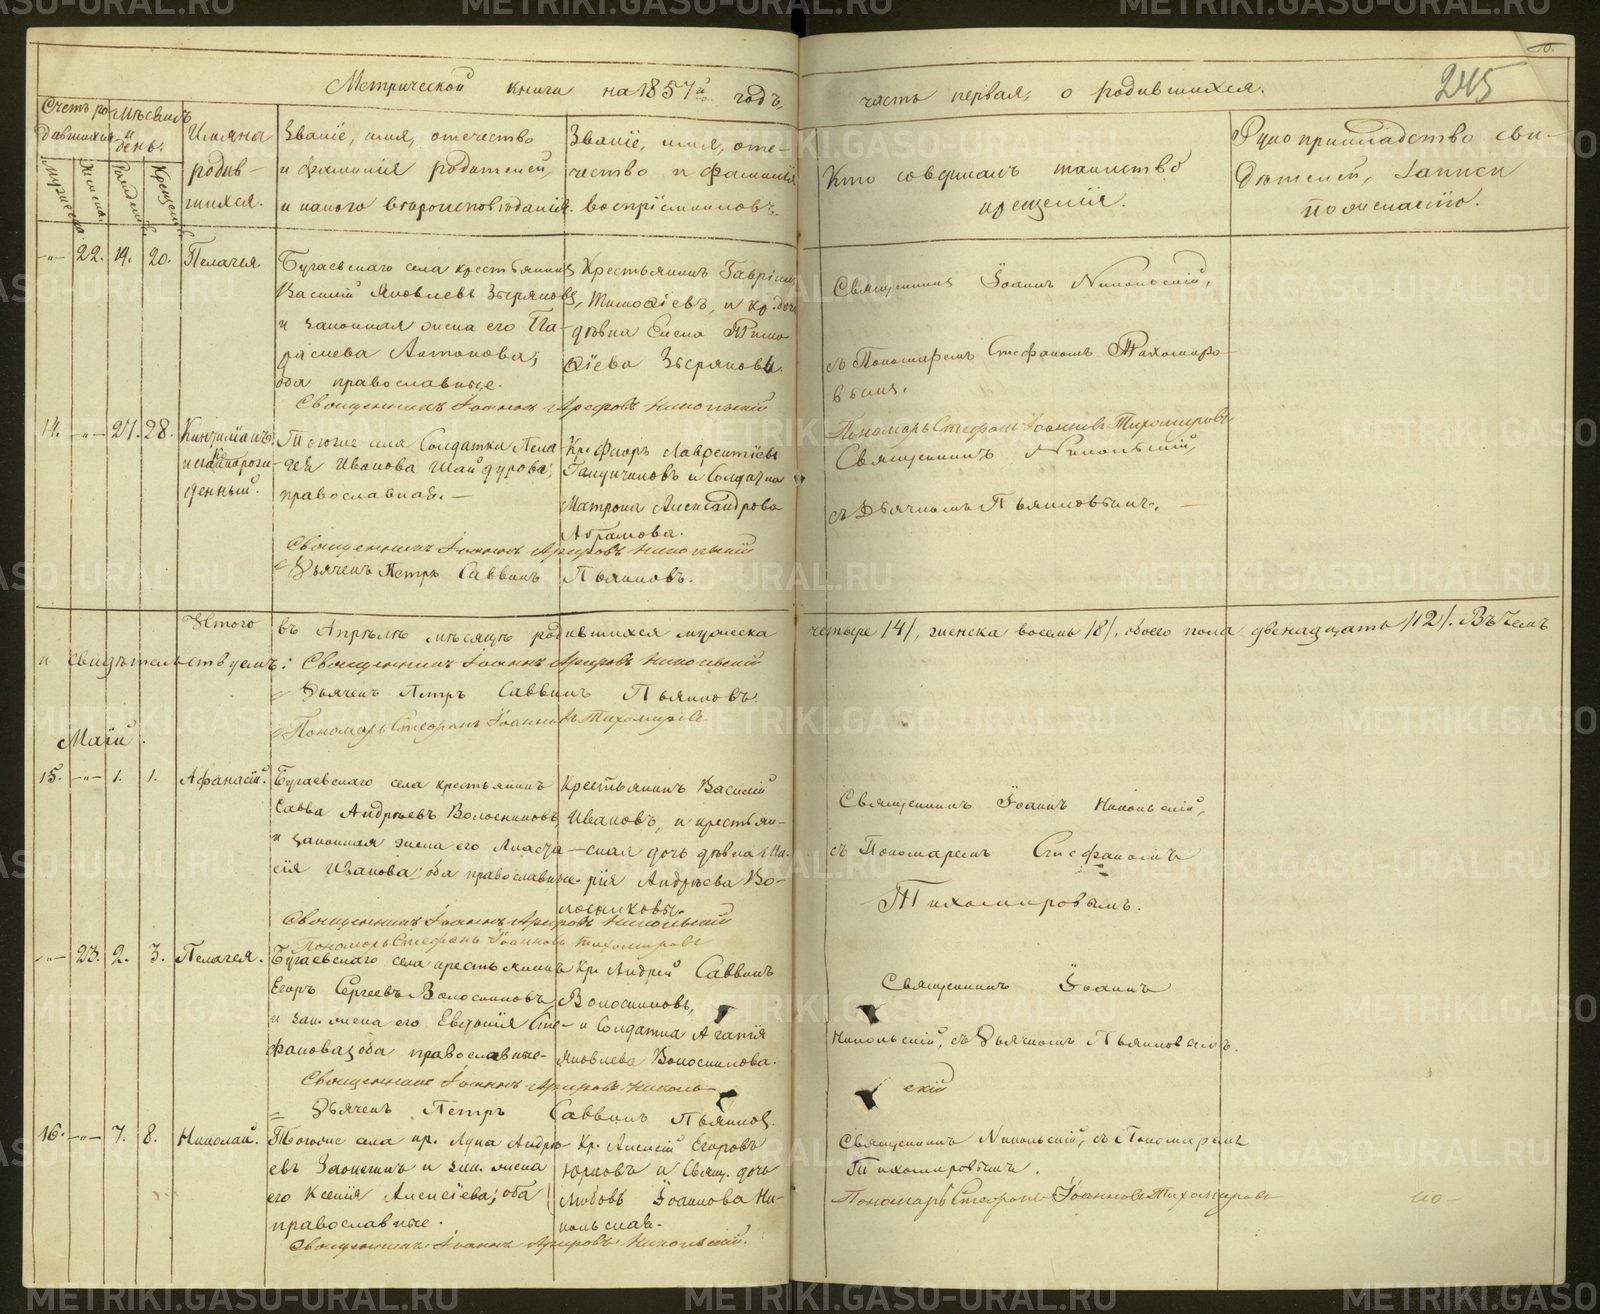 Метрической книги на 1857й годъ
часть первая, о родившихся.
245
Счетъ родившихся
Мѣсяцъ и день.
Имяна родившихся.
Званіе, имя, отечество
и фамилія родителей,
и какого вѣроисповѣданія.
Званіе, имя, отечество и фамилія
воспріемниковъ.
Кто совершалъ таинство
крещенія.
Рукоприкладство свидѣтелей, записи
по желанію.
Мужеска
Женска
Рожденія
Крещенія
-"- 22. 19. 20. Пелагея
Бугаевскаго села крестьянинъ
Василій Яковлевъ Зыряновъ,
и законная жена его Параскева Антонова,
оба православные.
Крестьянинъ Гавріилъ
Тимоѳіевъ, и кр. дочь
дѣвка Елена Тимоѳіева Зыряновы.
Священникъ Іоаннъ Никольскій,
съ Пономаремъ Стефаномъ Тихомировымъ.
Священникъ Іоаннъ Арефовъ Никольскій
Пономарь Стефанъ Іоанновъ Тихомировъ
14. -"- 27. 28.
незаконнорожденный.
Тогоже села Солдатка Пелагея Иванова
православная.
Кр. Флоръ Лаврентіевъ
и Солдатка
Матрона Александрова
Абрамова.
Священникъ Никольскій,
съ Дьячкомъ Пьянковымъ.
Священникъ Іоаннъ Арефовъ Никольскій
Дьячекъ Петръ Саввинъ Пьянковъ.
Итого въ Апрѣлѣ мѣсяцѣ родившихся мужеска
четыре /4/, женска восемь /8/, обоего пола двенадцать /12/. Въ чемъ
и свидѣтельствуемъ: Священникъ Іоаннъ Арефовъ Никольскій
Дьячекъ Петръ Саввинъ Пьянковъ
Пономарь Стефанъ Іоанновъ Тихомировъ
Маій.
15. -"- 1. 1. Афанасій.
Бугаевскаго села крестьянинъ
Савва Андреевъ Волосниковъ,
и законная жена его Анастасія Иванова; оба православные.
Крестьянинъ Василій
Ивановъ, и крестьянская дочь дѣвка Марія Андреева Волосниковы.
Священникъ Іоаннъ Никольскій,
съ Пономаремъ Стефаномъ
Тихомировымъ.
Священникъ Іоаннъ Арефовъ Никольскій
Пономарь Стефанъ Іоанновъ Тихомировъ
-"- 23. 2. 3. Пелагея.
Бугаевскаго села крестьянинъ
Егоръ Сергеевъ Волосниковъ,
и зак. жена его Евдокія Стефанова; оба православные.
Кр. Андрей Саввинъ
Волосниковъ,
и Солдатка Агатія
Яковлева Волосникова.
Священникъ Іоаннъ
Никольскій, съ Дьячкомъ Пьянковымъ.
Священникъ Іоаннъ Арефовъ Николь-
скій
Дьячекъ Петръ Саввинъ Пьянковъ
16. -"- 7. 8. Николай.
Тогоже села кр. Лука Андреевъ и зак. жена
его Ксенія Алексіева; оба
православные.
Кр. Алексій Егоровъ
и Свящ. дочь
Любовь Іоаннова Никольская.
Священникъ Никольскій, съ Пономаремъ
Тихомировымъ.
Пономарь Стефанъ Іоанновъ Тихомировъ
Священникъ Іоаннъ Арефовъ Никольскій.
по-
METRIKI.GASO-URAL.RU